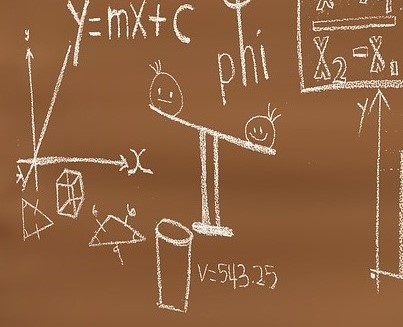 y=mx+c
phi
x₂-x₁
y
x
y
6
6
9
V=543.25